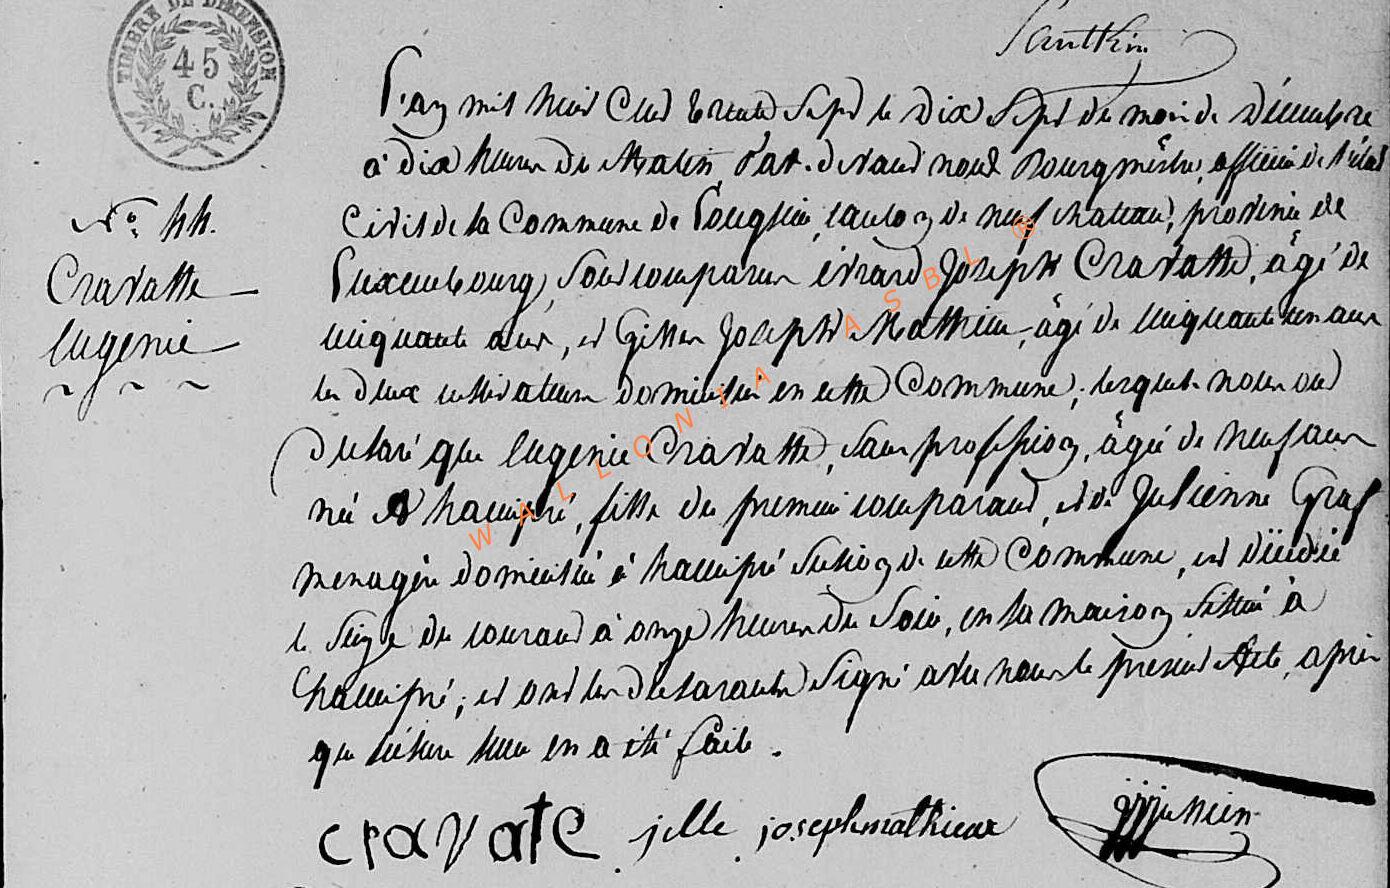 TIMBRE DE DIMENSION
45
C.
L'an mil huit cent trente sept le dix sept du mois de Décembre
à dix heures du Matin, Par-devant nous Bourgmestre, officier de l'état
N° 44.
civil de la Commune de Longlier, canton de neufchateau, province de
Cravatte
Luxembourg, sont comparus évrard Joseph Cravatte, âgé de
Eugénie
cinquante ans, et Gilles Joseph Mathieu, âgé de cinquante un ans
les deux cultivateurs domiciliés en cette Commune; lesquels nous ont
déclaré que Eugénie Cravatte, sans profession, âgée de neuf ans
née à hamipré, fille du premier comparant, et de Julienne Graf
menagère domiciliée à hamipré section de cette Commune, est décédée
le seize du courant à onze heures du Soir, en sa maison située à
hamipré; et ont les déclarants signé avec nous le présent Acte, après
que lecture leur en a été faite.
cravate jille joseph mathieux
WALLONIA ASBL ®